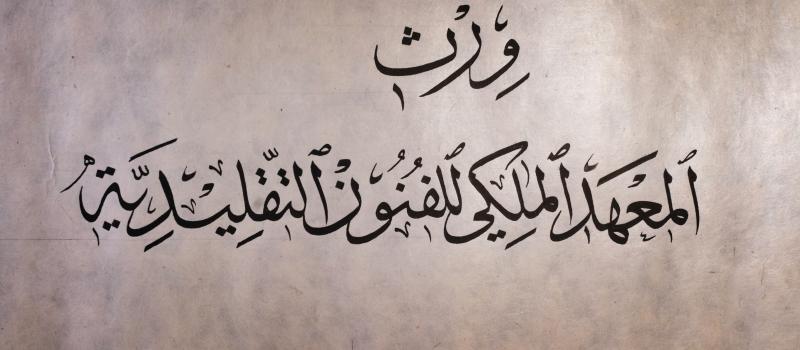 وِرْث
المعهد الملكي للفنون التقليدية